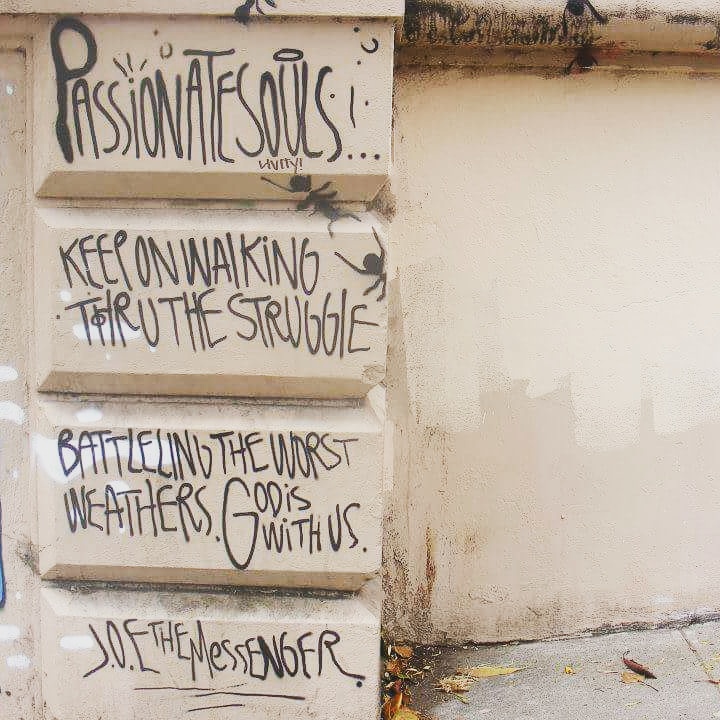 PASSIONATE SOULS!...
KEEP ON WALKING
THRU THE STRUGGLE
BATTLELING THE WORST
WEATHERS. GOD IS
WITH US.
J.O.E THE MESSENGER.